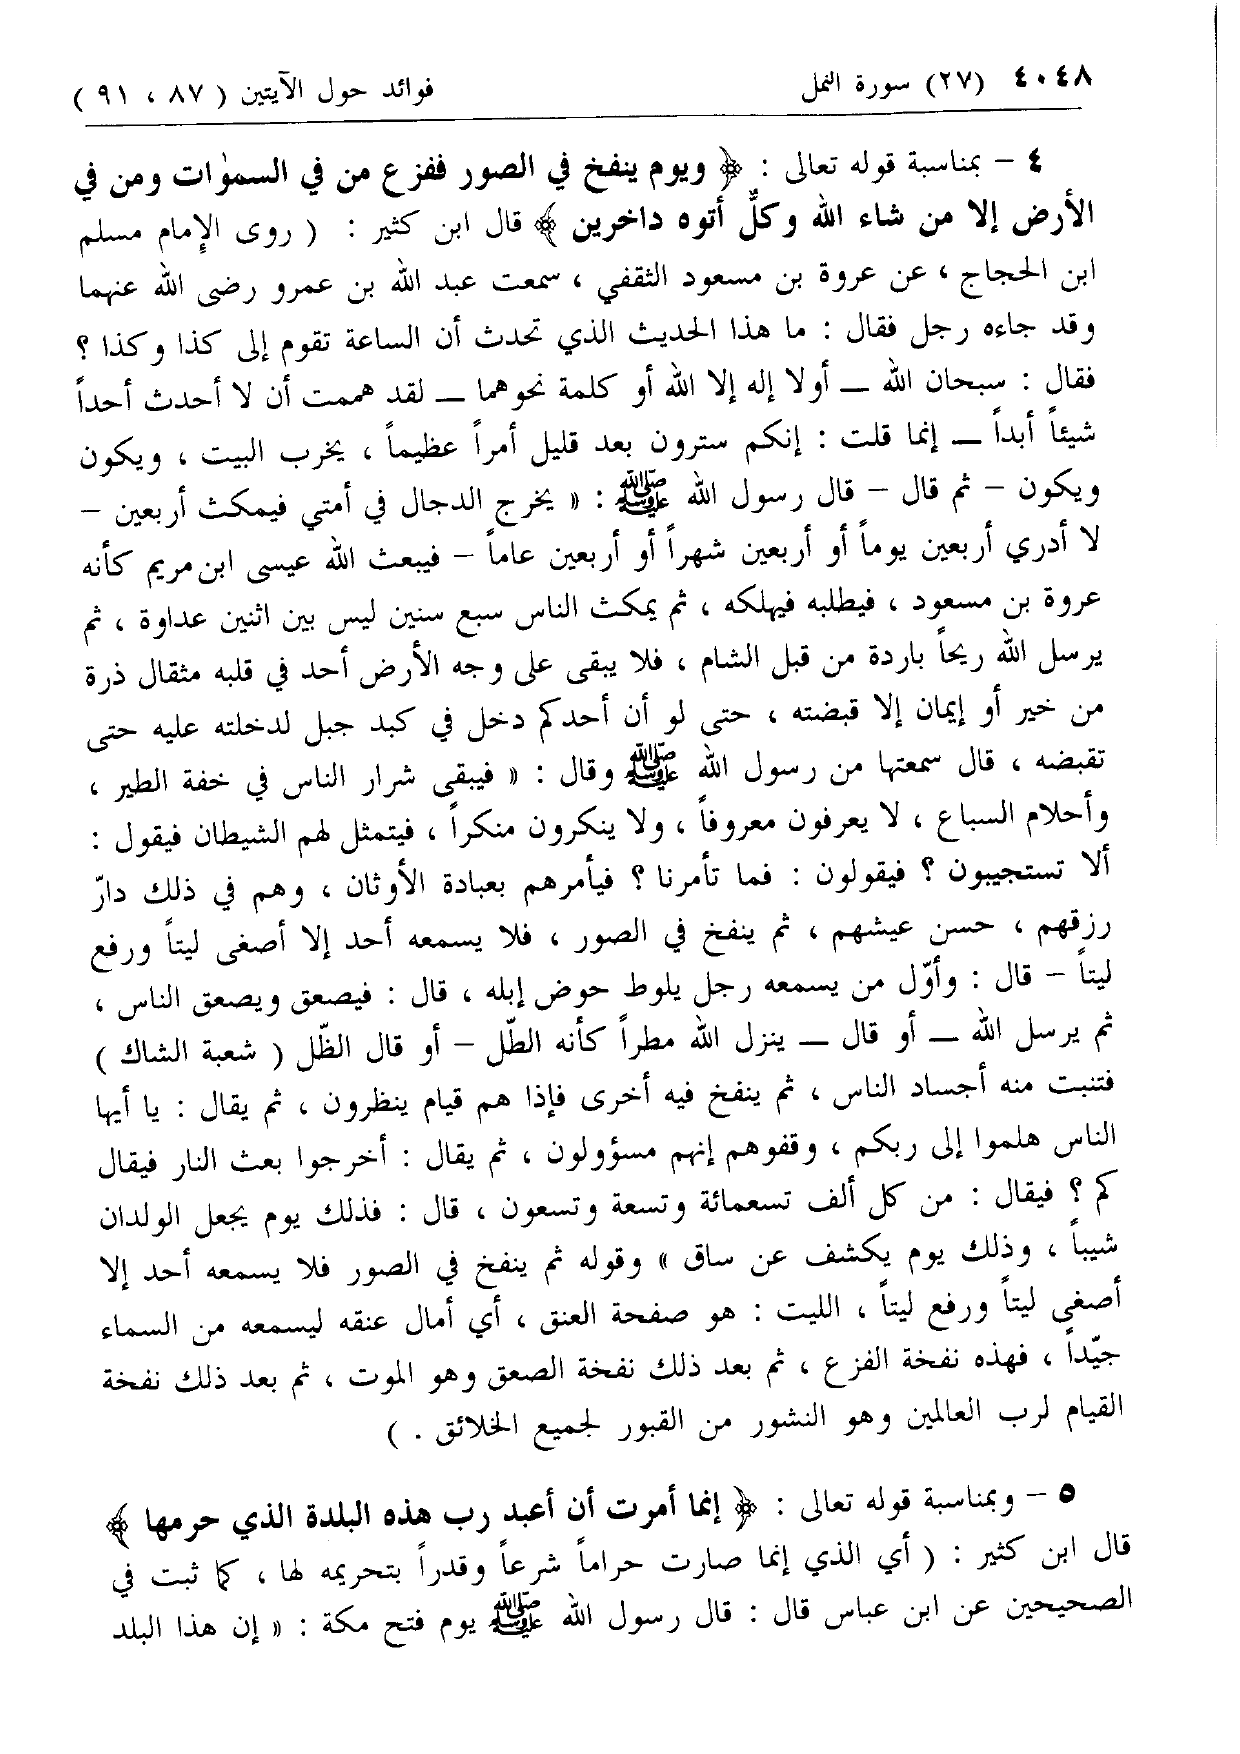 ٤٠٤٨ (٢٧) سورة النمل فوائد حول الآيتين ( ٨٧ ، ٩١ )
٤ – بمناسبة قوله تعالى : ﴿ ويوم ينفخ في الصور ففزع من في السمٰوات ومن في
الأرض إلا من شاء الله وكلٌّ أتوه داخرين ﴾ قال ابن كثير : ( روى الإمام مسلم
ابن الحجاج ، عن عروة بن مسعود الثقفي ، سمعت عبد الله بن عمرو رضى الله عنهما
وقد جاءه رجل فقال : ما هذا الحديث الذي تحدث أن الساعة تقوم إلى كذا وكذا ؟
فقال : سبحان الله — أولا إله إلا الله أو كلمة نحوهما — لقد هممت أن لا أحدث أحداً
شيئاً أبداً — إنما قلت : إنكم سترون بعد قليل أمراً عظيماً ، يخرب البيت ، ويكون
ويكون – ثم قال – قال رسول الله ﷺ : « يخرج الدجال في أمتي فيمكث أربعين –
لا أدري أربعين يوماً أو أربعين شهراً أو أربعين عاماً – فيبعث الله عيسى ابن مريم كأنه
عروة بن مسعود ، فيطلبه فيهلكه ، ثم يمكث الناس سبع سنين ليس بين اثنين عداوة ، ثم
يرسل الله ريحاً باردة من قبل الشام ، فلا يبقى على وجه الأرض أحد في قلبه مثقال ذرة
من خير أو إيمان إلا قبضته ، حتى لو أن أحدكم دخل في كبد جبل لدخلته عليه حتى
تقبضه ، قال سمعتها من رسول الله ﷺ وقال : « فيبقى شرار الناس في خفة الطير ،
وأحلام السباع ، لا يعرفون معروفاً ، ولا ينكرون منكراً ، فيتمثل لهم الشيطان فيقول :
ألا تستجيبون ؟ فيقولون : فما تأمرنا ؟ فيأمرهم بعبادة الأوثان ، وهم في ذلك دارّ
رزقهم ، حسن عيشهم ، ثم ينفخ في الصور ، فلا يسمعه أحد إلا أصغى ليتاً ورفع
ليتاً – قال : وأوّل من يسمعه رجل يلوط حوض إبله ، قال : فيصعق ويصعق الناس ،
ثم يرسل الله — أو قال — ينزل الله مطراً كأنه الطّل – أو قال الظّل ( شعبة الشاك )
فتنبت منه أجساد الناس ، ثم ينفخ فيه أخرى فإذا هم قيام ينظرون ، ثم يقال : يا أيها
الناس هلموا إلى ربكم ، وقفوهم إنهم مسؤولون ، ثم يقال : أخرجوا بعث النار فيقال
كم ؟ فيقال : من كل ألف تسعمائة وتسعة وتسعون ، قال : فذلك يوم يجعل الولدان
شيباً ، وذلك يوم يكشف عن ساق » وقوله ثم ينفخ في الصور فلا يسمعه أحد إلا
أصغى ليتاً ورفع ليتاً ، الليت : هو صفحة العنق ، أي أمال عنقه ليسمعه من السماء
جيّداً ، فهذه نفخة الفزع ، ثم بعد ذلك نفخة الصعق وهو الموت ، ثم بعد ذلك نفخة
القيام لرب العالمين وهو النشور من القبور لجميع الخلائق . )
٥ – وبمناسبة قوله تعالى : ﴿ إنما أمرت أن أعبد رب هذه البلدة الذي حرمها ﴾
قال ابن كثير : ( أي الذي إنما صارت حراماً شرعاً وقدراً بتحريمه لها ، كما ثبت في
الصحيحين عن ابن عباس قال : قال رسول الله ﷺ يوم فتح مكة : « إن هذا البلد